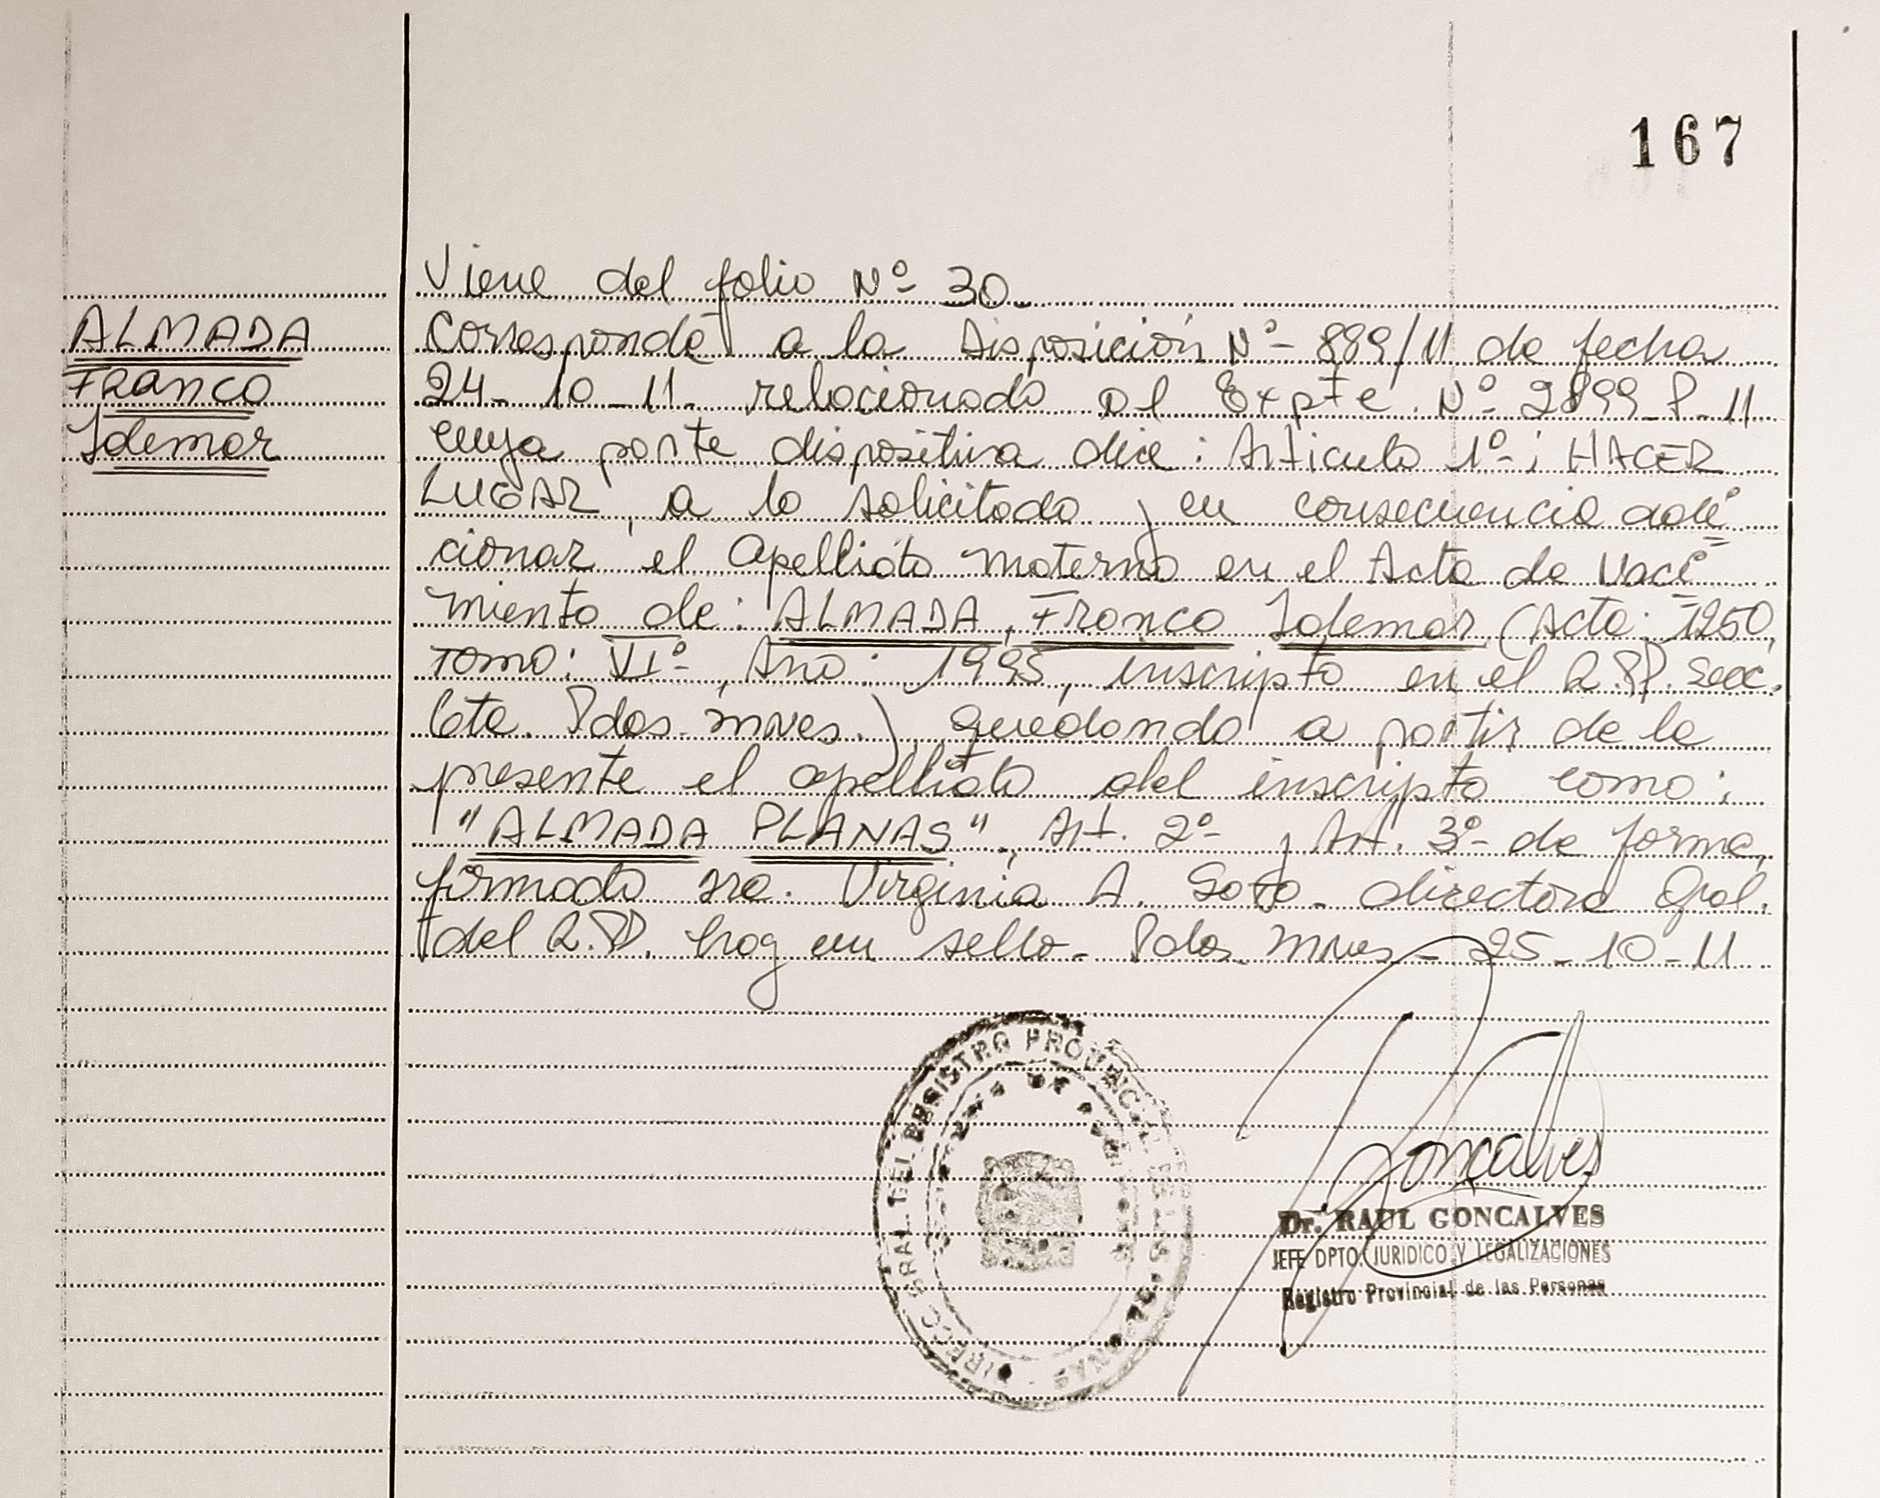 167
Viene del folio Nº 30.
ALMADA
Franco
Idemar
Corresponde a la Disposición Nº 889/11 de fecha
24-10-11. relacionado al Expte. Nº 2899-P-11
cuya parte dispositiva dice: Artículo 1º: HACER
LUGAR, a lo solicitado y en consecuencia adi
cionar el apellido materno en el Acta de Naci
miento de: ALMADA, Franco Idemar (Acta: 1250,
Tomo: VIº, Año: 1995, inscripto en el R.PP. Secc.
6ta. Pdas. Mnes.) quedando a partir de la
presente el apellido del inscripto como:
"ALMADA PLANAS", Art. 2º y Art. 3º de forma,
firmado Sra. Virginia A. Soto. directora Gral.
del R.PP. hay un sello. Pdas. Mnes - 25-10-11
DIRECC. GRAL. DEL REGISTRO PROVINCIAL DE LAS PERSONAS
Goncalves
Dr. RAUL GONCALVES
JEFE DPTO. JURIDICO Y LEGALIZACIONES
Registro Provincial de las Personas